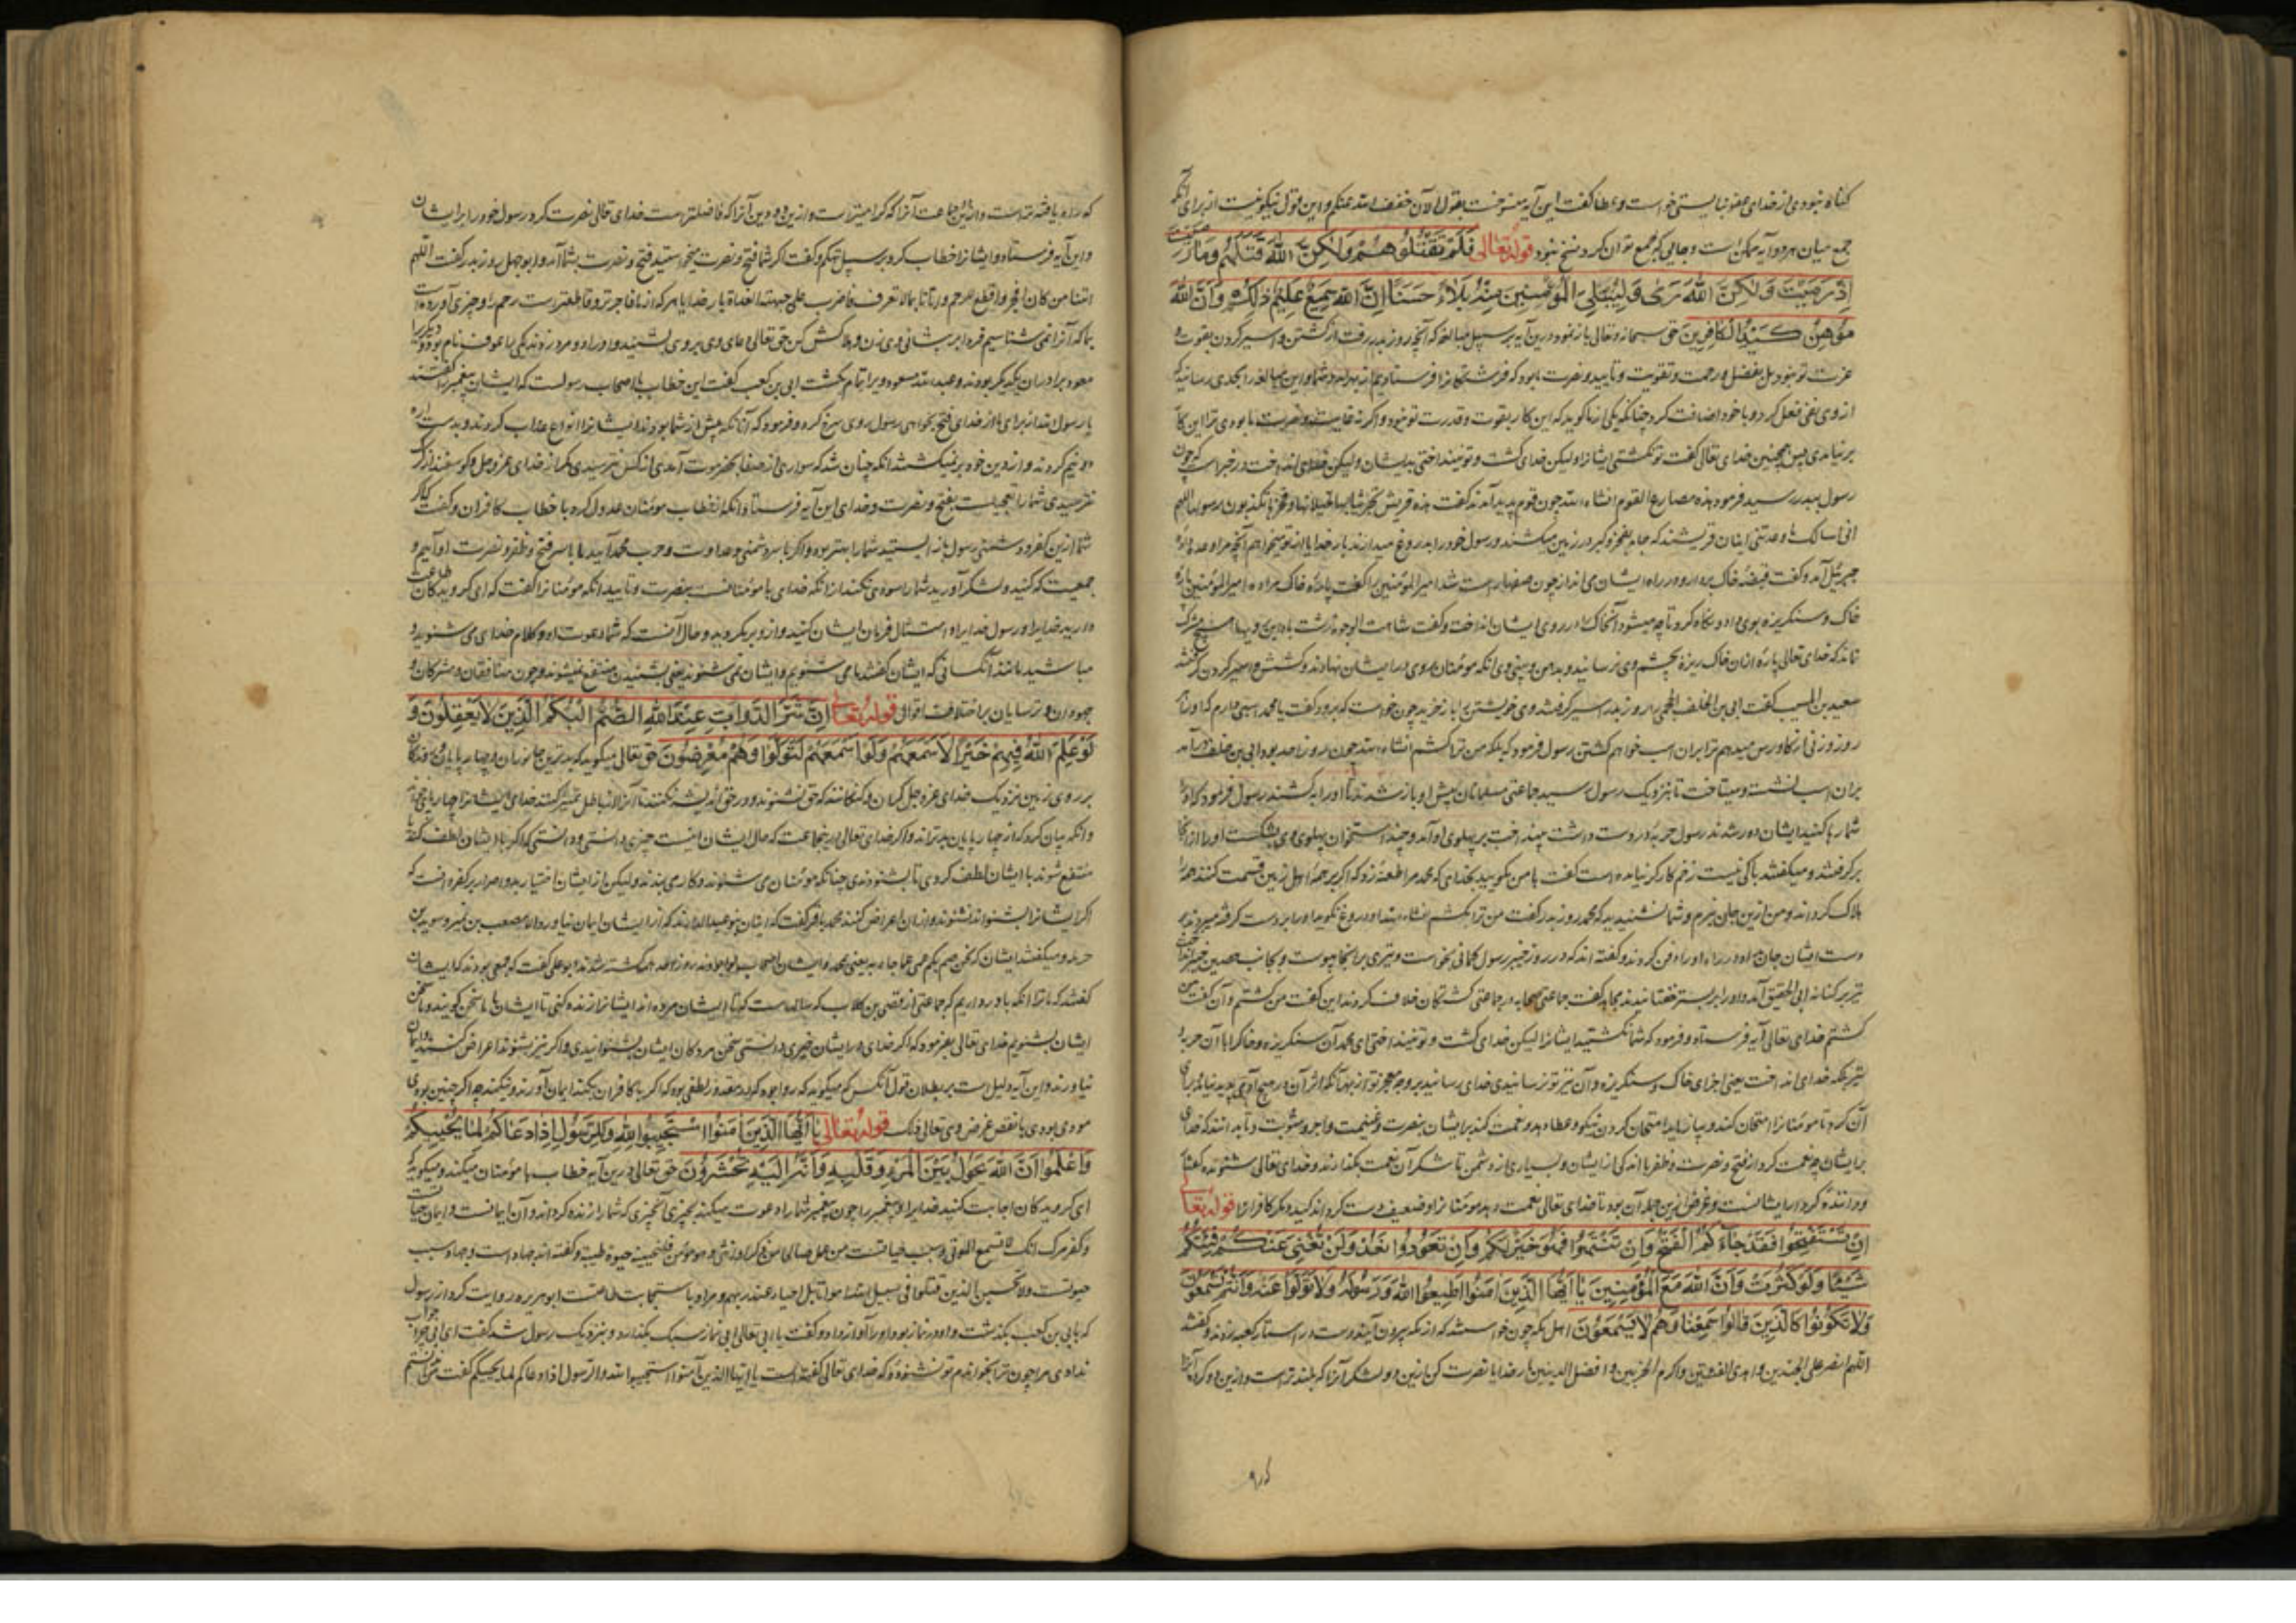 گناه نبودی از خدای عفو نبایستی خواست و عطا گفت این آیه منسوخست بقول الآن خفف الله عنکم و این قول نیکو نیست از برای آنکه
جمع میان هر دو آیه ممکن است و جایی که جمع توان کرد نسخ نبود قوله تعالی فَلَمْ تَقْتُلُوهُمْ وَلٰكِنَّ اللهَ قَتَلَهُمْ وَمَا رَمَيْتَ
اِذْ رَمَيْتَ وَلٰكِنَّ اللهَ رَمٰى وَلِيُبْلِيَ الْمُؤْمِنِينَ مِنْهُ بَلَاءً حَسَنًا اِنَّ اللهَ سَمِيعٌ عَلِيمٌ ذٰلِكُمْ وَاَنَّ اللهَ
مُوهِنُ كَيْدِ الْكَافِرِينَ حق سبحانه و تعالی باز نمود درین آیه بر سبیل مبالغه که آنچه روز بدر رفت از کشتن و اسیر کردن بقوت و
عزت تو نبود بل بفضل و رحمت و تقویت و تایید و نصرت ما بود که فرشتگانرا فرستادیم
از وی نفی فعل کرد و با خود اضافت کرد چنانکه یکی از ما گوید که این کار بقوت و قدرت تو نبود و اگر نه
بر نیامدی پس همچنین خدای تعالی گفت تو نکشتی ایشانرا ولیکن خدای کشت و تو نینداختی بدیشان ولیکن خدای انداخت و در خبر است که چون
رسول ببدر رسید فرمود هذه مصارع القوم انشاء الله چون قوم پدید آمدند گفت هذه قریش
انی اسالک ما وعدتنی اینان قریشند که
جبرئیل آمد و گفت قبضهٔ خاک بردار و در راه ایشان می انداز چون امیر المؤمنین را گفت پارهٔ خاک مرا ده امیر المؤمنین پارهٔ
خاک و سنگریزه بوی داد و آنخاک را در روی ایشان انداخت و گفت شاهت الوجوه
نماند که خدای تعالی پارهٔ از آن خاک ریزه بچشم وی نرسانید و بدهن و بینی وی آنگه مؤمنان روی در ایشان نهادند و کشتن و اسیر کردن گرفتند
سعید بن المسیب گفت ابی بن الخلف الجمحی را روز بدر اسیر گرفتند وی خویشتن را باز خرید چون خواست که برود گفت یا محمد اسبی دارم که او را
روز بدان اسب خواهم کشتن رسول فرمود که بلکه من ترا کشم انشاء الله چون روز احد بود ابی بن خلف درآمد
بران اسب نشسته و میتاخت تا بنزدیک رسول رسید جماعتی مسلمانان پیش او باز شدند تا او را بکشند رسول فرمود که او را
شما رها کنید ایشان دور شدند رسول حربهٔ در دست داشت بینداخت بر پهلوی او آمد و چند استخوان پهلوی وی بشکست او را از آنجا
برگرفتند و میگفتند باکی نیست زخم کارگر نیامده است گفت با من بگویید بخدای که محمد مرا طعنهٔ زد که اگر بر جمله اهل زمین قسمت کنند همه را
هلاک گرداند و من ازین جان نبرم و شما نشنیدید که محمد روز بدر گفت من ترا بکشم انشاء الله و او دروغ نگوید او را بر دست گرفته میبردند بر
دست ایشان جان داد در راه او را دفن کردند و گفته اند که در روز خیبر رسول کمانی بخواست و تیری برانجا پیوست و بجانب حصن خیبر انداخت
تیر بر کنانه ابی الحقیق آمد و او را بر بستر خفتانیدند مجاهد گفت جماعتی صحابه در جماعتی کشتگان خلاف کردند این گفت من کشتم و آن گفت من
کشتم خدای تعالی آیه فرستاد و فرمود که شما نکشتید ایشانرا لیکن خدای کشت و تو نینداختی ای محمد آن سنگریزه و خاک را با آن حربه
تیر بلکه خدای انداخت یعنی اجزای خاک و سنگریزه و آن تیر تو نرسانیدی خدای رسانید
آن کرد تا مؤمنانرا امتحان کند و بیازماید امتحان کردن نیکو و عطا دهد و نعمت کند بر ایشان بنصرت و غنیمت و اجر و مثوبت و تا بدانند که خدای
بر ایشان چه نعمت کرد از فتح و نصرت و ظفر با اندکی از ایشان و بسیاری از دشمن تا شکر آن نعمت بگذارند و خدای تعالی شنونده گفتار
و دانندهٔ کردار ایشانست و غرض ازین جمله آن بود تا خدای تعالی نعمت دهد مؤمنانرا و ضعیف و سست گرداند کید و مکر کافرانرا قوله تعالی
اِنْ تَسْتَفْتِحُوا فَقَدْ جَاءَكُمُ الْفَتْحُ وَاِنْ تَنْتَهُوا فَهُوَ خَيْرٌ لَكُمْ وَاِنْ تَعُودُوا نَعُدْ وَلَنْ تُغْنِيَ عَنْكُمْ فِئَتُكُمْ
شَيْئًا وَلَوْ كَثُرَتْ وَاَنَّ اللهَ مَعَ الْمُؤْمِنِينَ يَا اَيُّهَا الَّذِينَ اٰمَنُوا اَطِيعُوا اللهَ وَرَسُولَهُ وَلَا تَوَلَّوْا عَنْهُ وَاَنْتُمْ تَسْمَعُونَ
وَلَا تَكُونُوا كَالَّذِينَ قَالُوا سَمِعْنَا وَهُمْ لَا يَسْمَعُونَ اهل مکه چون خواستند که از مکه بیرون آیند دست در استار کعبه زدند و گفتند
اللهم انصر علی الجندین و اهدی الفئتین و اکرم الحزبین و افضل الدینین بار خدایا نصرت کن ازین دو لشکر آنرا که بلندتر است و ازین دو گروه آنرا
که راه یافته تر است و ازین جماعت آنرا که گرامیتر است و ازین دو دین آنرا که فاضلتر است خدای تعالی نصرت کرد رسول خود را بر ایشان
و این آیه فرستاد و ایشانرا خطاب کرد بر سبیل تهکم و گفت اگر شما فتح و نصرت میخواستید فتح و نصرت بشما آمد و ابوجهل روز بدر گفت اللهم
اینا من کان افجر و اقطع للرحم و اتانا بما لا نعرف فاضرب علی جبهته الغداة بار خدایا هر که از ما فاجرتر و قاطعتر است رحم را و چیزی آورده است
بما که آنرا نمی شناسیم فردا بر پیشانی وی زن و هلاکش کن حق تعالی دعای وی بر وی بشنید و او را دو مرد زدند یکی را عوف نام بود و دیگر را
معوذ برادران یکدیگر بودند و عبد الله مسعود ویرا تمام بکشت ابی بن کعب گفت این خطاب با اصحاب رسولست که ایشان پیغمبر را گفتند
یا رسول الله از برای ما از خدای فتح بخواهی رسول روی سرخ کرد و فرمود که آنانکه پیش از شما بودند ایشانرا انواع عذاب کردندی و بدست اره
دو نیم کردند و از دین خود برنمیگشتند آنگه چنان شد که سواری از صنعا بحضرموت آمدی از کس نترسیدی مگر از خدای عز و جل و گوسفند از گرگ
نترسیدی شمارا تعجیلست بفتح و نصرت و خدای این آیه فرستاد و آنگه از خطاب مؤمنان عدول کرد با خطاب کافران و گفت که اگر
شما ازین کفر و دشمنی رسول باز ایستید شمارا بهتر بود و اگر با سر دشمنی و عداوت و حرب محمد آیید ما با سر فتح و ظفر و نصرت او آییم و
جمعیت که کنید و لشکر آورید شمارا سودی نکند از آنکه خدای با مؤمنانست بنصرت و تایید آنگه مؤمنانرا گفت که ای گرویدگان طاعت
دارید خدایرا و رسول خدایرا و امتثال فرمان ایشان کنید و ازو برمگردید و حال آنست که شما دعوت او و کلام خدای می شنوید و
مباشید مانند آنکسانی که ایشان گفتند ما می شنویم و ایشان نمی شنوند یعنی بشنیدن منتفع نمیشوند چون منافقان و مشرکان و
جهودان و ترسایان بر اختلاف اقوال قوله تعالی اِنَّ شَرَّ الدَّوَابِّ عِنْدَ اللهِ الصُّمُّ الْبُكْمُ الَّذِينَ لَا يَعْقِلُونَ وَ
لَوْ عَلِمَ اللهُ فِيهِمْ خَيْرًا لَاَسْمَعَهُمْ وَلَوْ اَسْمَعَهُمْ لَتَوَلَّوْا وَهُمْ مُعْرِضُونَ حق تعالی میگوید که بدترین جانوران و چهارپایان و روندگان
بر روی زمین نزدیک خدای عز و جل کران و گنگانند که حق نشنوند و در حق اندیشه نکنند تا آنرا از باطل تمییز کنند خدای ایشانرا چهارپای خواند
و آنگه بیان کرد که از چهارپایان بدتراند و اگر خدای تعالی در ینجماعت که حال ایشان اینست چیزی دانستی و دانستی که اگر با ایشان لطف کند
منتفع شوند با ایشان لطف کردی تا بشنودندی چنانکه مؤمنان می شنوند و کار می بندند ولیکن از ایشان اختیار بد و اصرار بر کفر دانست که
اگر ایشانرا بشنواند نشنوند و از آن اعراض کنند محمد باقر گفت که اینان بنو عبدالدارند که از ایشان ایمان نیاورد الا مصعب بن عمیر و سوید بن
حرمله و میگفتند ایشان که نحن صم بکم عمی عما جاء به یعنی محمد و ایشان اصحاب لوا بودند روز احد همه کشته شدند ابوعلی گفت که قومی بودند که ایشان
گفتند که ما ترا آنگه باور داریم که جماعتی از قصی بن کلاب که سالهاست که تا ایشان مرده اند ایشانرا زنده کنی تا ایشان با ما سخن گویند و ما سخن
ایشان بشنویم خدای تعالی بفرمود که اگر خدای در ایشان خیری دانستی سخن مردگان ایشان بشنوانیدی و اگر نیز بشنوند اعراض کنند و ایمان
نیاورند و این آیه دلیل است بر بطلان قول آنکس که میگوید که روا بود که در مقدور لطفی بود که اگر با کافران بکند ایمان آورند و نکند چه اگر چنین بودی
مودی بودی با نقض غرض وی تعالی عن ذلک قوله تعالی يَا اَيُّهَا الَّذِينَ اٰمَنُوا اسْتَجِيبُوا لِلّٰهِ وَلِلرَّسُولِ اِذَا دَعَاكُمْ لِمَا يُحْيِيكُمْ
وَاعْلَمُوا اَنَّ اللهَ يَحُولُ بَيْنَ الْمَرْءِ وَقَلْبِهِ وَاَنَّهُ اِلَيْهِ تُحْشَرُونَ حق تعالی درین آیه خطاب با مؤمنان میکند و میگوید که
ای گرویدگان اجابت کنید خدایرا و پیغمبر را چون پیغمبر شمارا دعوت میکند بچیزی آنچیزی که شمارا زنده گرداند و آن ایمانست و ایمان حیات
و کفر مرگ انک لا تسمع الموتی و سبب حیاتست من عمل صالحا من ذکر او انثی و هو مؤمن فلنحیینه حیوة طیبة و گفته اند جهاد است و جهاد سبب
حیوتست ولا تحسبن الذین قتلوا فی سبیل الله امواتا بل احیاء عند ربهم و مراد باستجابت طاعتست ابوهریره روایت کرد از رسول
که بابی بن کعب بگذشت و او در نماز بود او را آواز داد و گفت یا ابی تعالی ابی نماز سبک بگذارد و بنزدیک رسول شد گفت ای ابی چرا جواب
ندادی مرا چون ترا بخواندم تو نشنودهٔ که خدای تعالی گفته است یا ایها الذین آمنوا استجیبوا لله و للرسول اذا دعاکم لما یحییکم گفت من